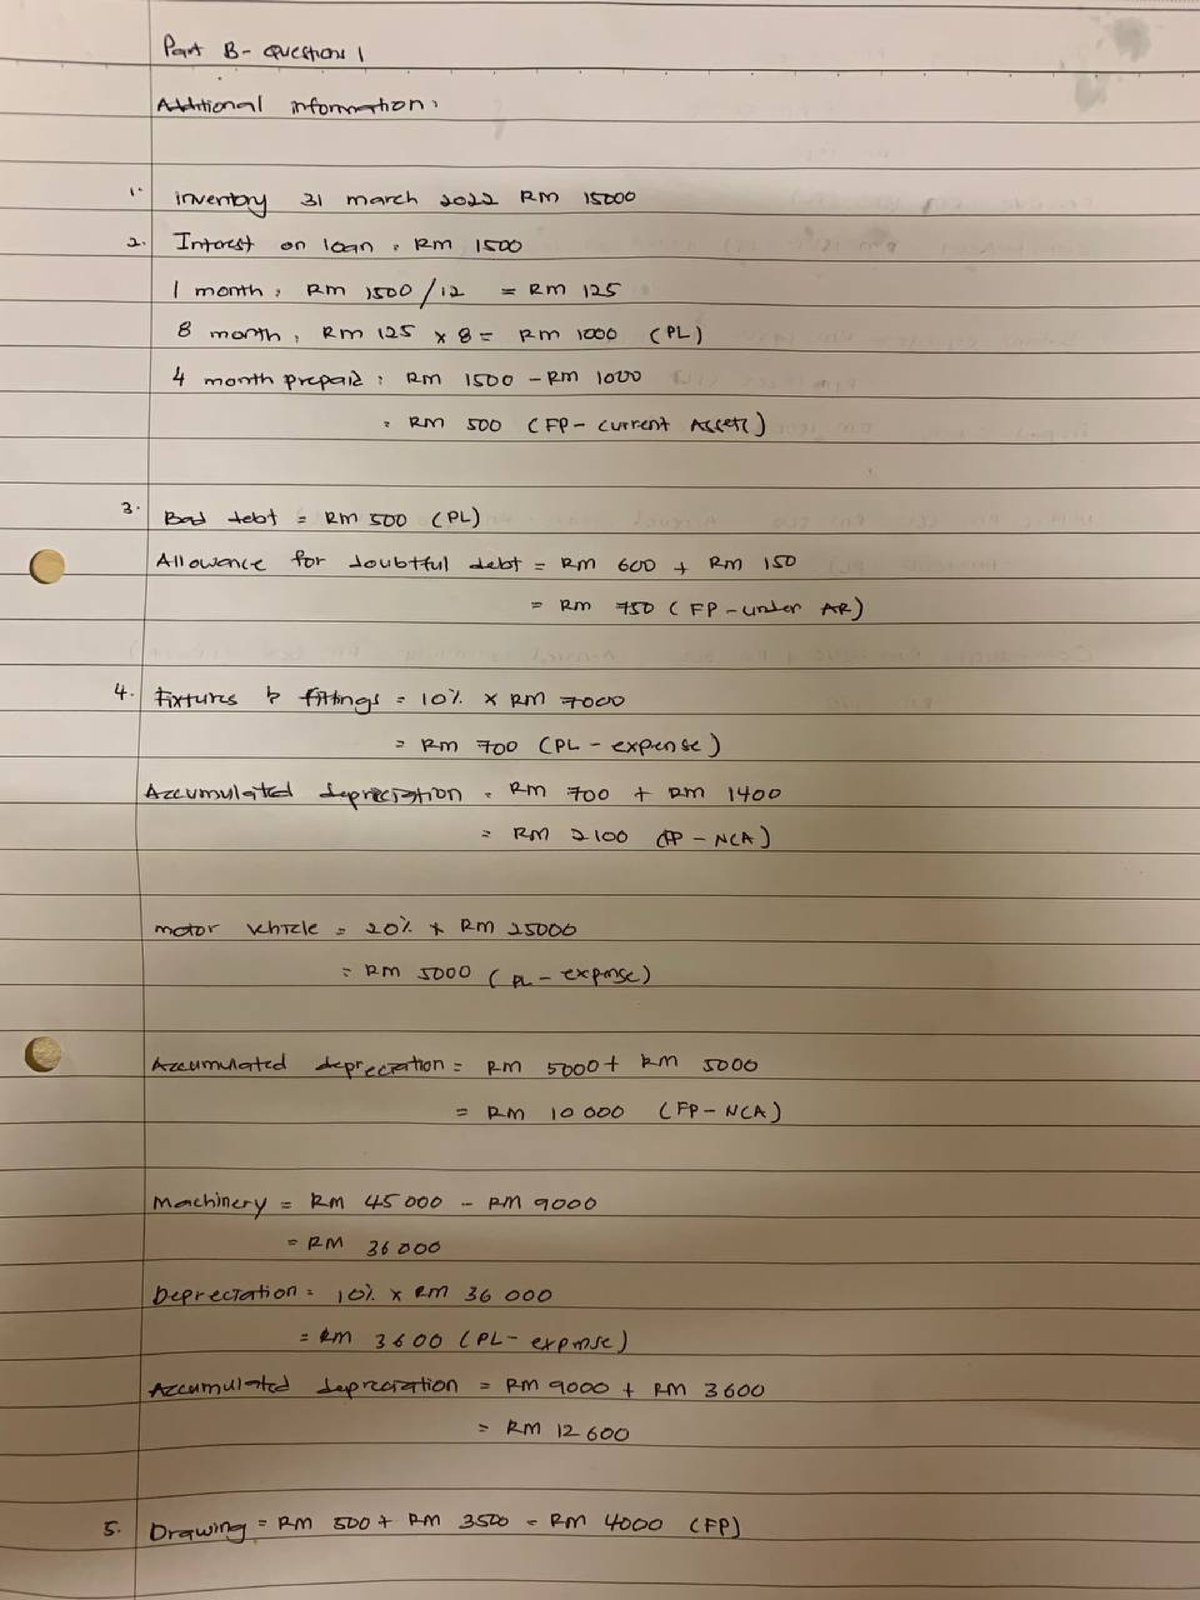 Part B- Question 1
Additional information:
1. inventory 31 march 2022 RM 15000
2. Interest on loan : RM 1500
1 month : RM 1500/12 = RM 125
8 month : RM 125 x 8 = RM 1000 (PL)
4 month prepaid : RM 1500 - RM 1000
: RM 500 (FP- current Assets)
3. Bad debt = RM 500 (PL)
Allowance for doubtful debt = RM 600 + RM 150
= RM 750 (FP-under AR)
4. Fixtures & fittings = 10% x RM 7000
= RM 700 (PL - expense)
Accumulated depreciation = RM 700 + RM 1400
= RM 2100 (FP - NCA)
motor vehicle = 20% x RM 25000
= RM 5000 (PL - expense)
Accumulated depreciation = RM 5000 + RM 5000
= RM 10 000 (FP-NCA)
Machinery = RM 45 000 - RM 9000
= RM 36 000
Depreciation = 10% x RM 36 000
= RM 3600 (PL- expense)
Accumulated depreciation = RM 9000 + RM 3600
= RM 12 600
5. Drawing = RM 500 + RM 3500 = RM 4000 (FP)